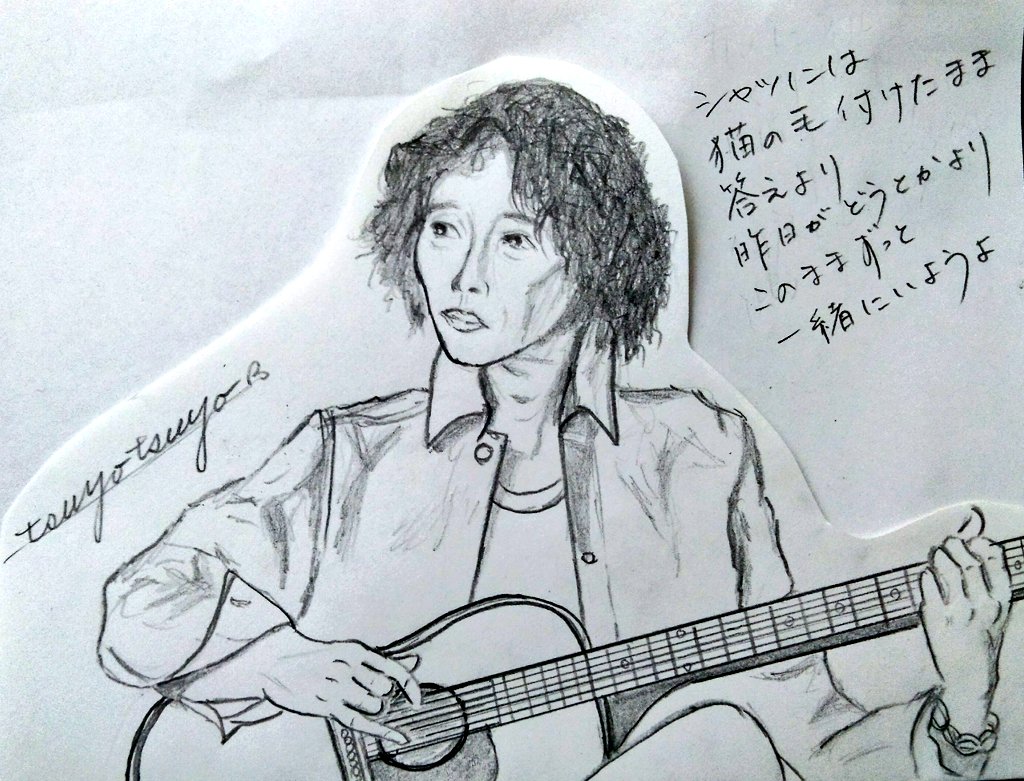 シャツには
猫の毛付けたまま
答えより
昨日がどうとかより
このままずっと
一緒にいようよ
tsuyotsuyo